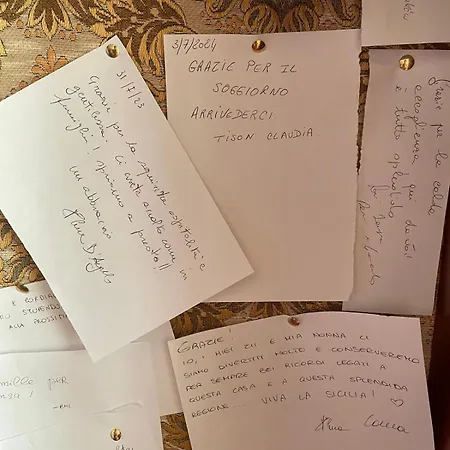 31/7/23
Grazie per la squisita ospitalità e
gentilezza! Ci avete accolto come in
famiglia! Speriamo a presto!!
un abbraccio
3/7/2024
GRAZIE PER IL
SOGGIORNO
ARRIVEDERCI
TISON CLAUDIA
Grazie per la calda
accoglienza! qui da voi
è tutto splendido
E CORDIA
STUPENDO
ALLA PROSSI
mille per
GRAZIE!
IO, I MIEI ZII E MIA NONNA CI
SIAMO DIVERTITI MOLTO E CONSERVEREMO
PER SEMPRE BEI RICORDI LEGATI A
QUESTA CASA E A QUESTA SPLENDIDA
REGIONE... VIVA LA SICILIA!